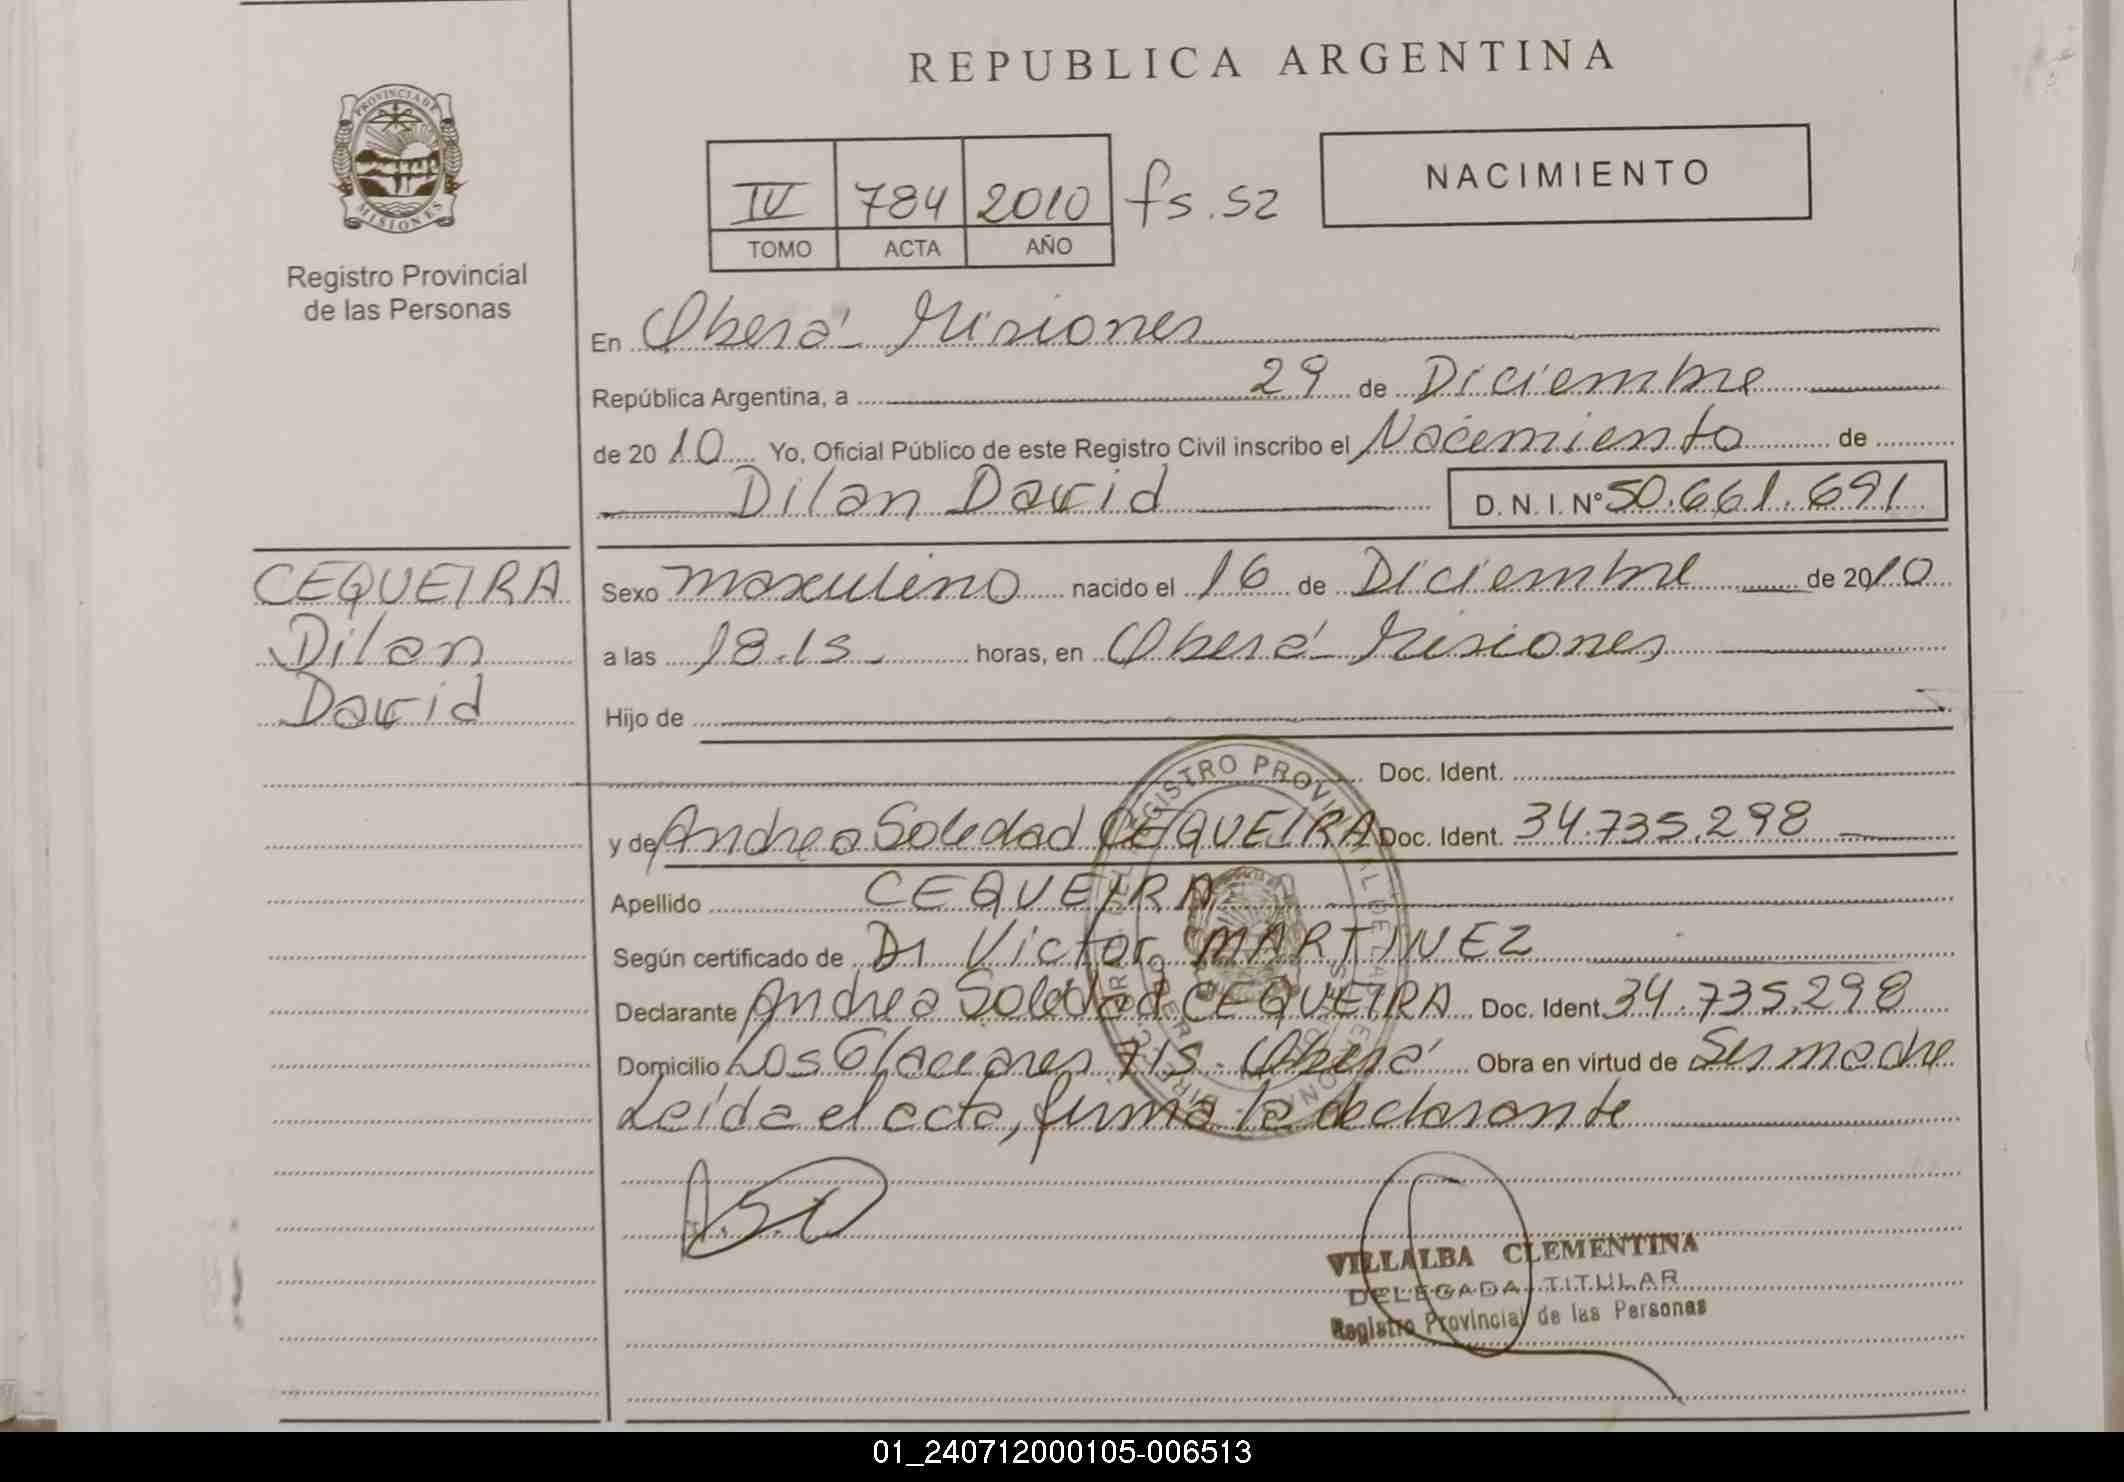 REPUBLICA ARGENTINA
PROVINCIA DE
MISIONES
Registro Provincial
de las Personas
IV 784 2010 fs. 52
TOMO ACTA AÑO
NACIMIENTO
En Oberá Misiones
República Argentina, a 29 de Diciembre
de 2010 Yo, Oficial Público de este Registro Civil inscribo el Nacimiento de
Dilan David D. N. I. Nº 50.661.691
CEQUEIRA
Dilan
David
Sexo masculino nacido el 16 de Diciembre de 2010
a las 18.15 horas, en Oberá Misiones
Hijo de
Doc. Ident.
y de Andrea Soledad CEQUEIRA Doc. Ident. 34.735.298
Apellido CEQUEIRA
Según certificado de Dr Victor MARTINEZ
Declarante Andrea Soledad CEQUEIRA Doc. Ident. 34.735.298
Domicilio Los Glaciares 715 - Oberá Obra en virtud de Ser madre
Leída el acta, firma la declarante
VILLALBA CLEMENTINA
DELEGADA TITULAR
Registro Provincial de las Personas
01_240712000105-006513